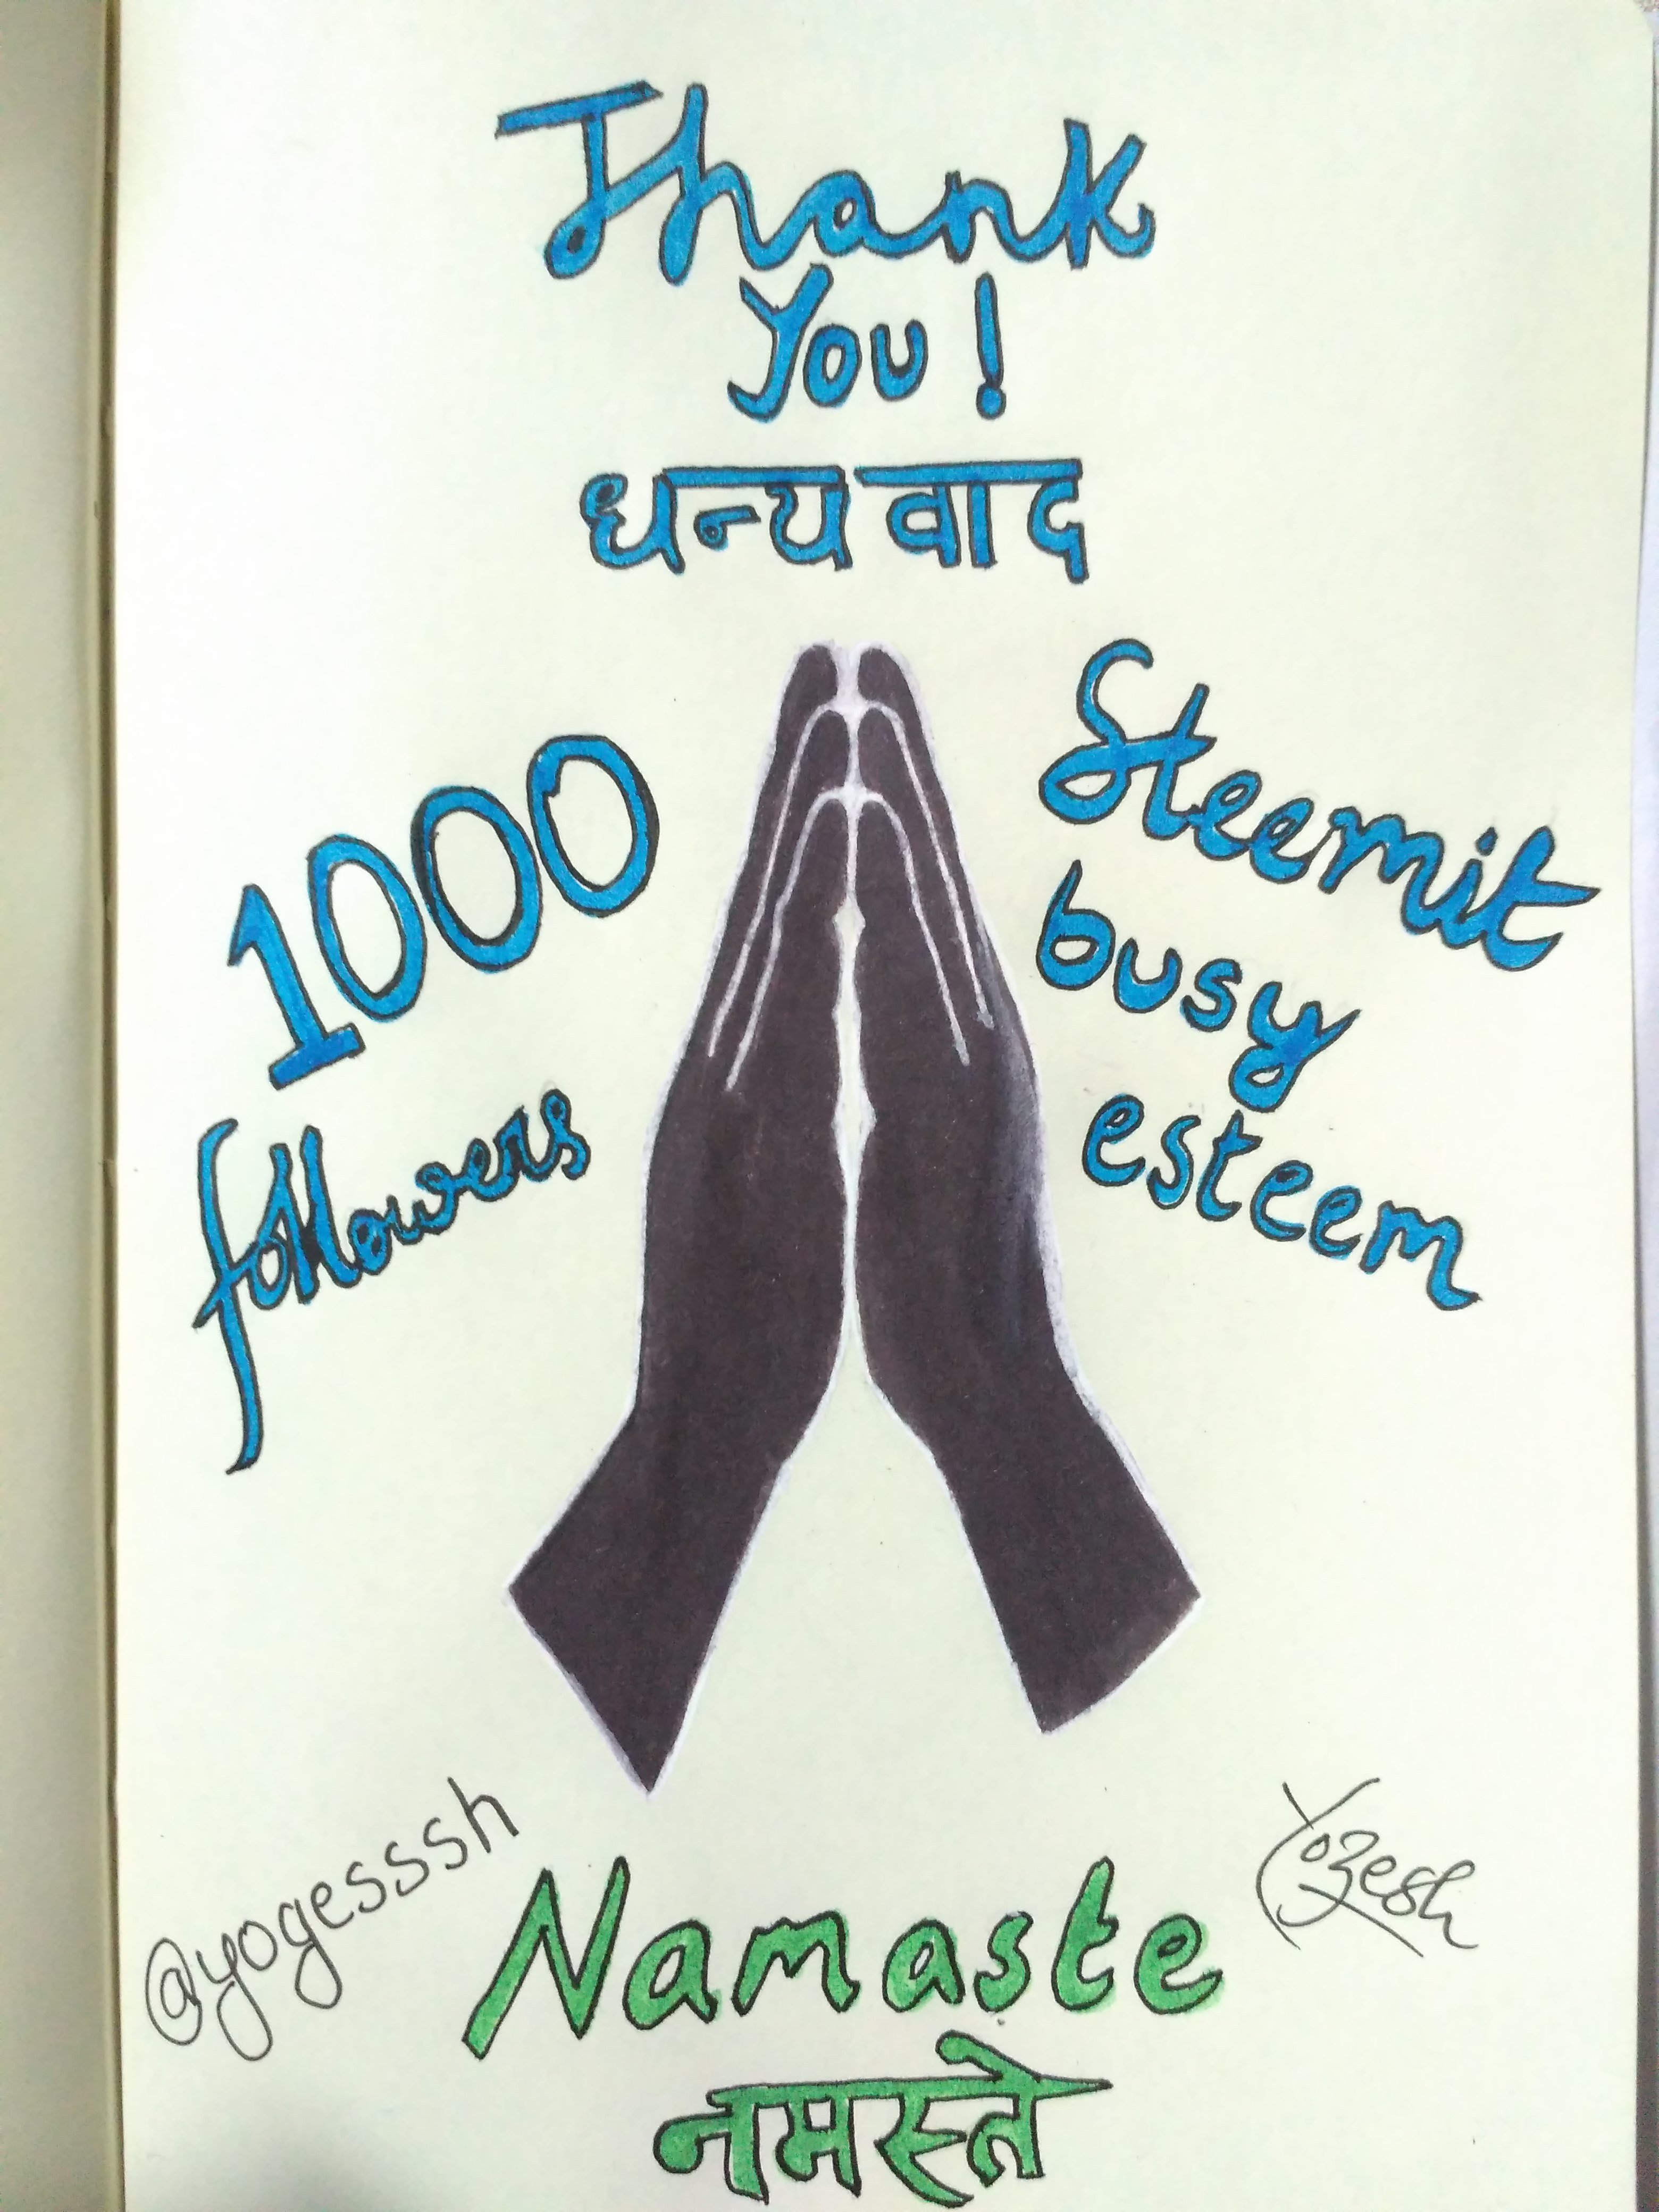 Thank
You!
धन्यवाद
1000
followers
Steemit
busy
esteem
@yogesssh
Yozesh
Namaste
नमस्ते